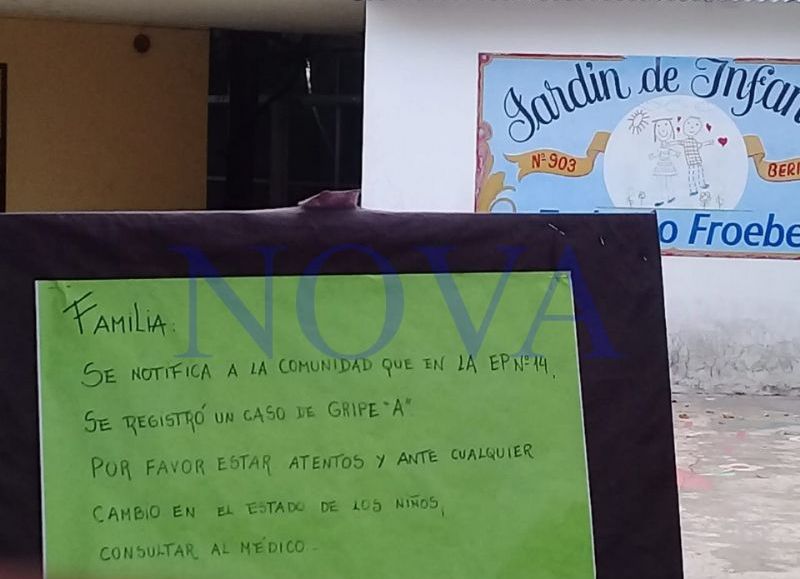 Jardín de Infan
Nº 903
BERI
o Froebe
NOVA
FAMILIA:
SE NOTIFICA A LA COMUNIDAD QUE EN LA EP Nº 14,
SE REGISTRÓ UN CASO DE GRIPE "A"
POR FAVOR ESTAR ATENTOS Y ANTE CUALQUIER
CAMBIO EN EL ESTADO DE LOS NIÑOS,
CONSULTAR AL MÉDICO..